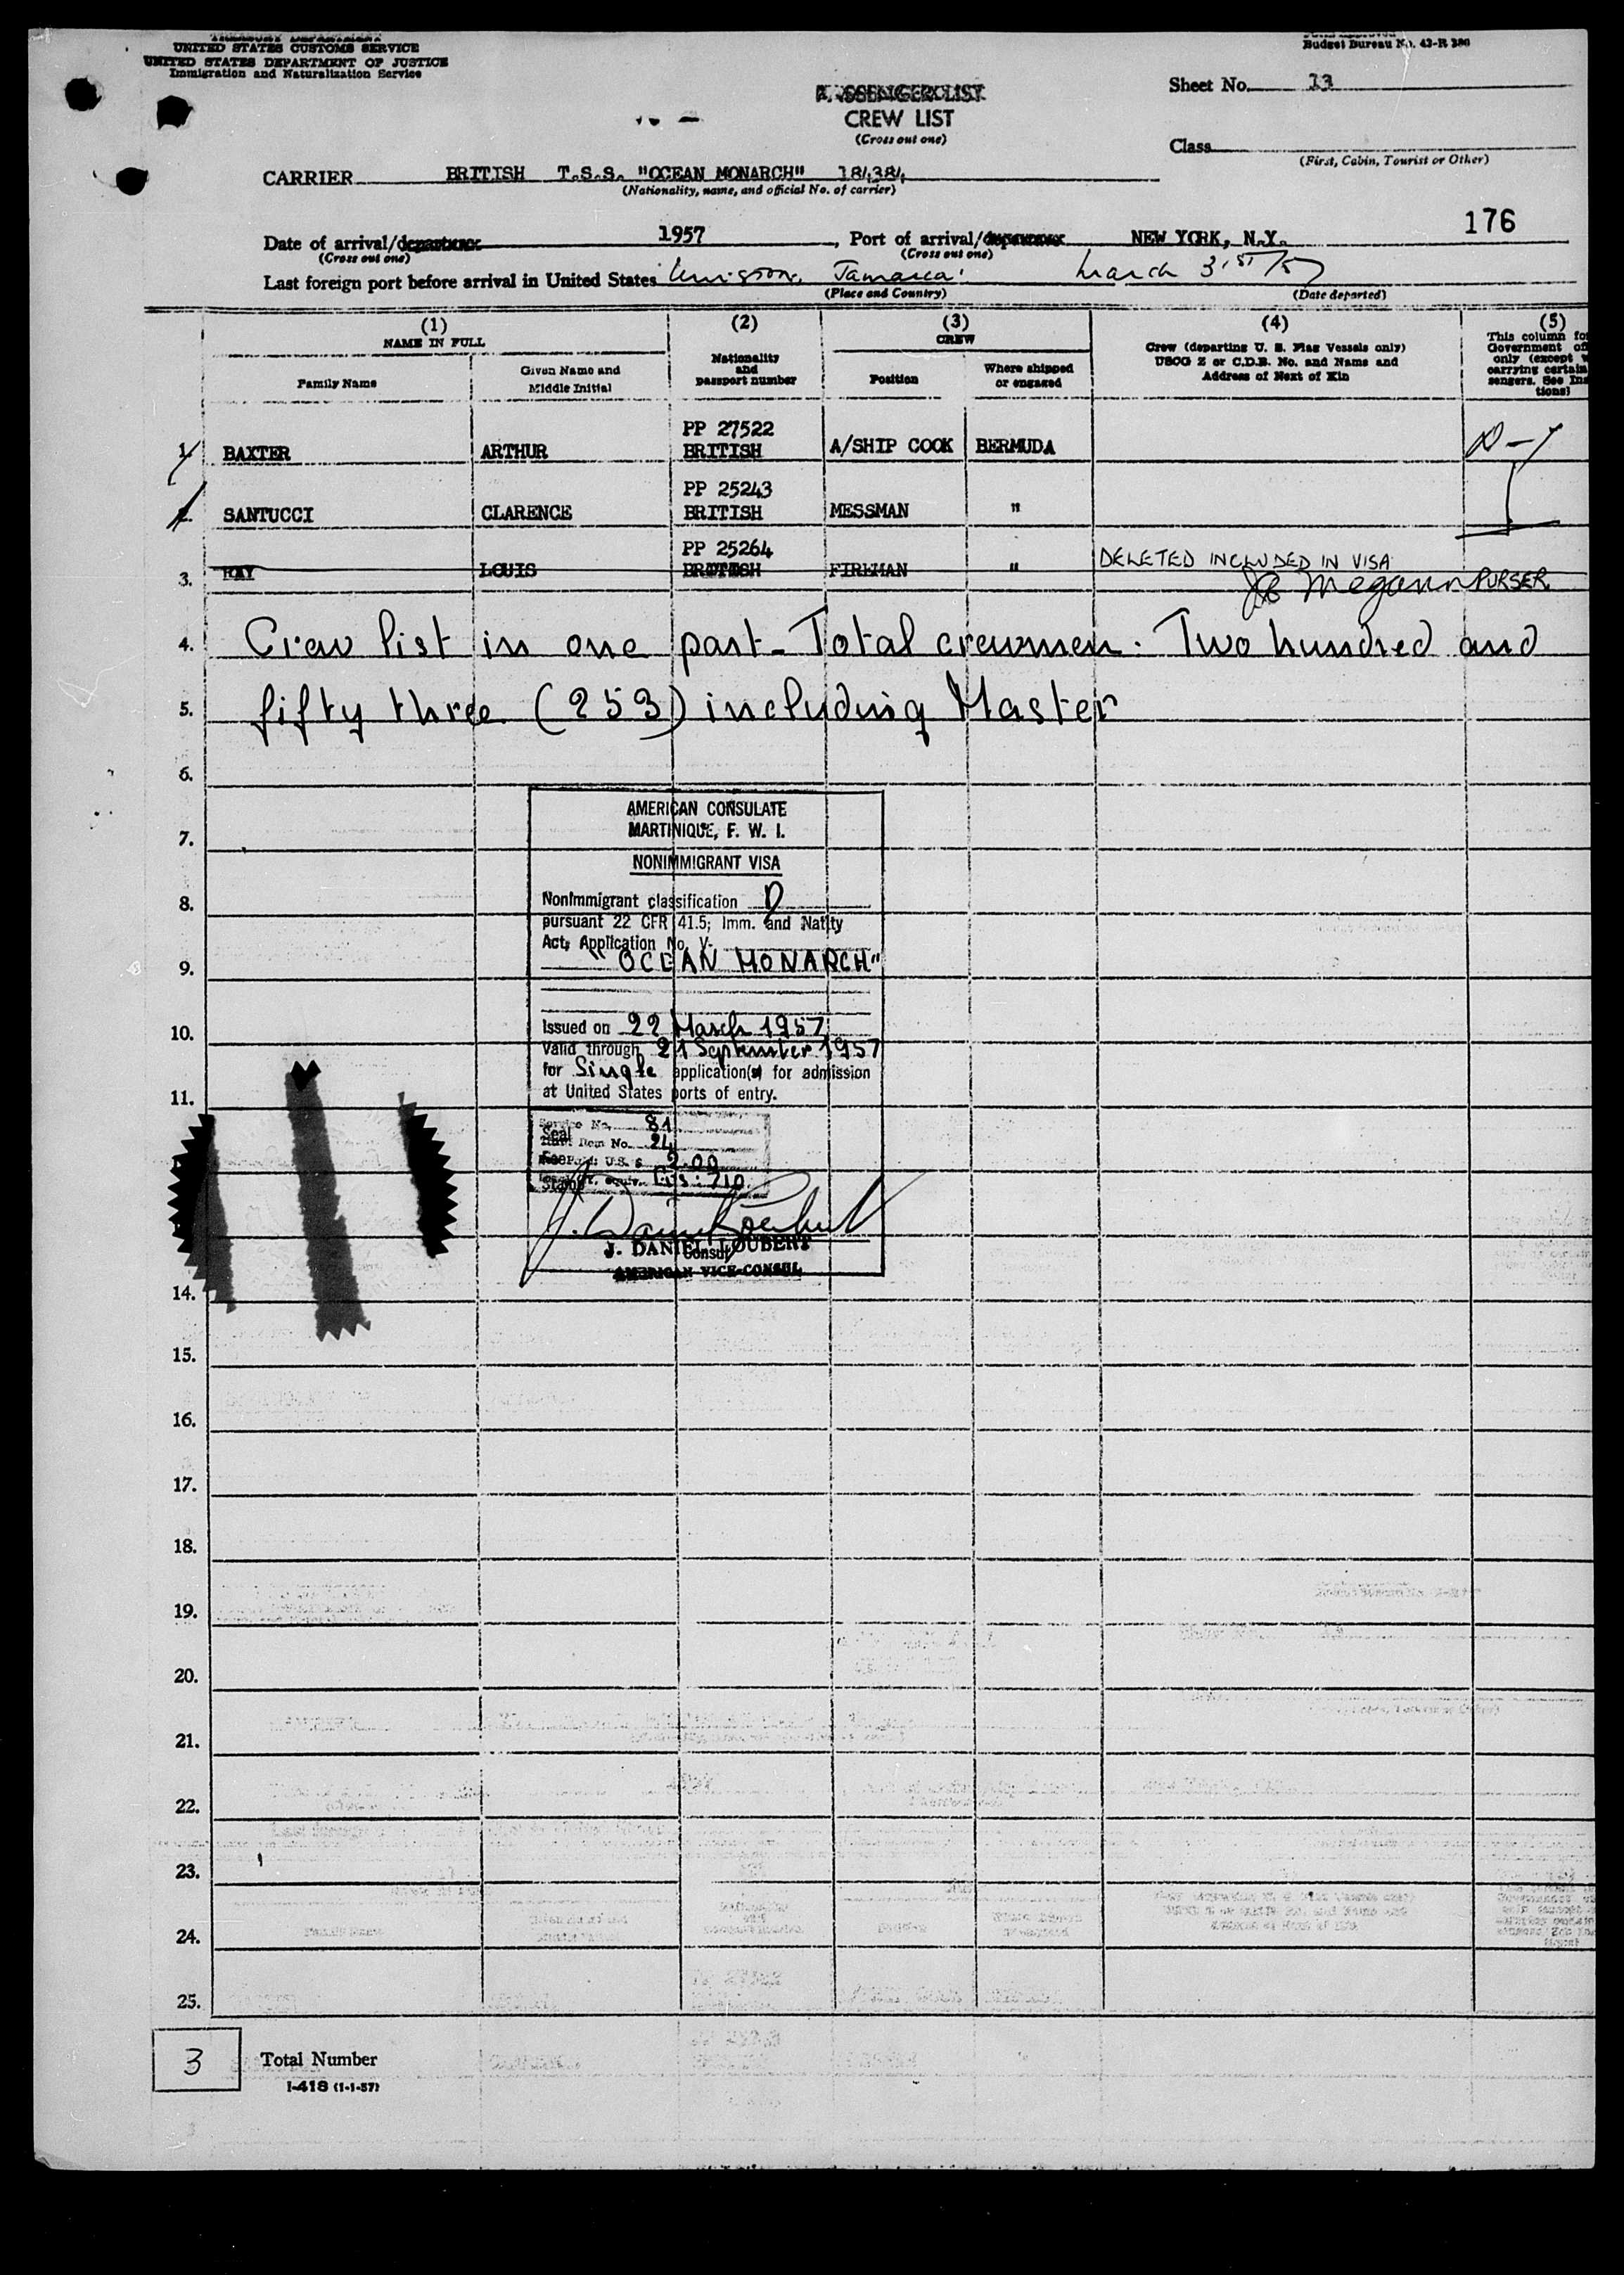 TREASURY DEPARTMENT
UNITED STATES CUSTOMS SERVICE
UNITED STATES DEPARTMENT OF JUSTICE
Immigration and Naturalization Service
Form approved
Budget Bureau No. 43-R 386
Sheet No. 13
PASSENGER LIST
CREW LIST
(Cross out one)
Class
(First, Cabin, Tourist or Other)
CARRIER BRITISH T.S.S. "OCEAN MONARCH" 18/384
(Nationality, name, and official No. of carrier)
176
Date of arrival/departure 1957, Port of arrival/departure NEW YORK, N.Y.
(Cross out one) (Cross out one)
Last foreign port before arrival in United States Kingston, Jamaica March 31st/57
(Place and Country) (Date departed)
(1) (2) (3) (4) (5)
NAME IN FULL
Family Name
Given Name and
Middle Initial
Nationality
and
passport number
CREW
Position
Where shipped
or engaged
Crew (departing U. S. Flag Vessels only)
USCG Z or C.D.B. No. and Name and
Address of Next of Kin
This column fo
Government of
only (except w
carrying certain
sengers. See Ins
tions)
PP 27522
1. BAXTER ARTHUR BRITISH A/SHIP COOK BERMUDA D-1
PP 25243
2. SANTUCCI CLARENCE BRITISH MESSMAN "
PP 25264
3. RAY LOUIS BRITISH FIREMAN " DELETED INCLUDED IN VISA
Megann PURSER
4. Crew list in one part - Total crewmen: Two hundred and
5. fifty three (253) including Master
6.
AMERICAN CONSULATE
MARTINIQUE, F. W. I.
7.
NONIMMIGRANT VISA
8. Nonimmigrant classification D
pursuant 22 CFR 41.5; Imm. and Natlty
Act, Application No. V-
9. "OCEAN MONARCH"
10. Issued on 22 March 1957
Valid through 21 September 1957
for Single application(s) for admission
11. at United States ports of entry.
Service No. 81
Seal
Item No. 24
Fee Paid: U.S. $ 2.00
Stamp equiv. Frs: 710
J. DANIEL LOUBERT
Consul
AMERICAN VICE-CONSUL
14.
15.
16.
17.
18.
19.
20.
21.
22.
23.
24.
25.
3 Total Number
I-418 (1-1-57)